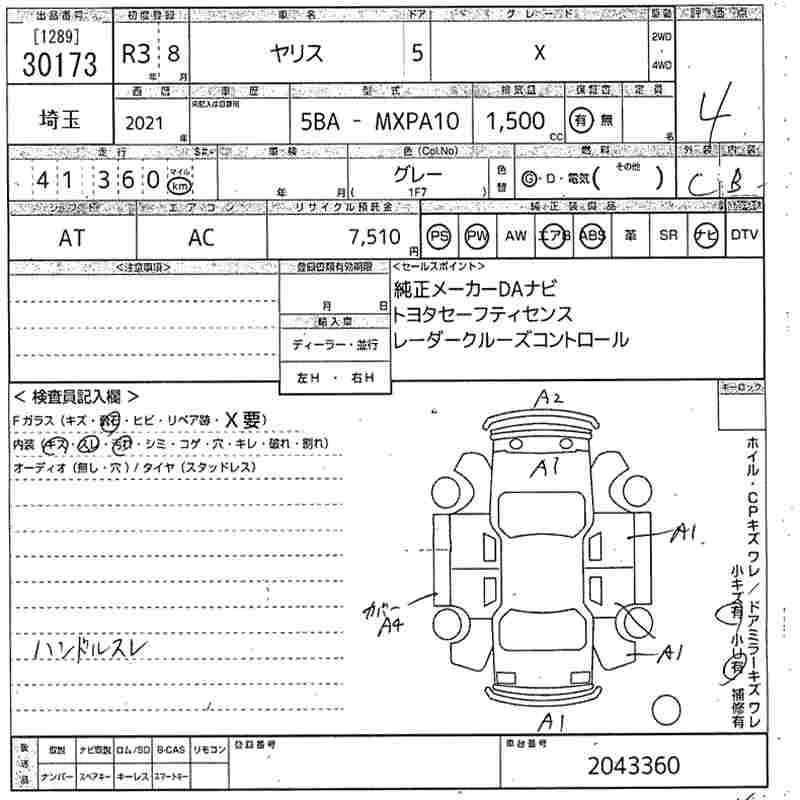 出品番号 初度登録 車名 ドア グレード 駆動 評価点
[1289]
30173 R3 8 年 月 ヤリス 5 X 2WD ・ 4WD 4
西暦 車歴 型式 排気量 保証書 定員
埼玉 2021 年 5BA - MXPA10 1,500 CC 有 無 名
走行 車検 色(Col.No) 燃料 外装 内装
41360 マイル km 年 月 グレー ( 1F7 ) 色替 G・D・電気( その他 ) C B
シフト エアコン リサイクル預託金 純正装備品
AT AC 7,510 円 PS PW AW エアB ABS 革 SR ナビ DTV
<注意事項> 登録書類有効期限 <セールスポイント>
月 日
純正メーカーDAナビ
トヨタセーフティセンス
レーダークルーズコントロール
輸入車
ディーラー・並行
左H ・ 右H
< 検査員記入欄 > キーロック
Fガラス (キズ・飛石・ヒビ・リペア跡・X要)
内装 (キズ・スレ・汚れ・シミ・コゲ・穴・キレ・破れ・割れ)
オーディオ (無し・穴) / タイヤ (スタッドレス)
A2
A1
A1
カバー
A4
A1
A1
ハンドルスレ
ホイル・CPキズワレ/ドアミラーキズワレ
小キズ有 小U有 補修有
返送品 取説 ナビ取説 ロム/SD B-CAS リモコン 登録番号 車台番号
ナンバー スペアキー キーレス スマートキー 2043360